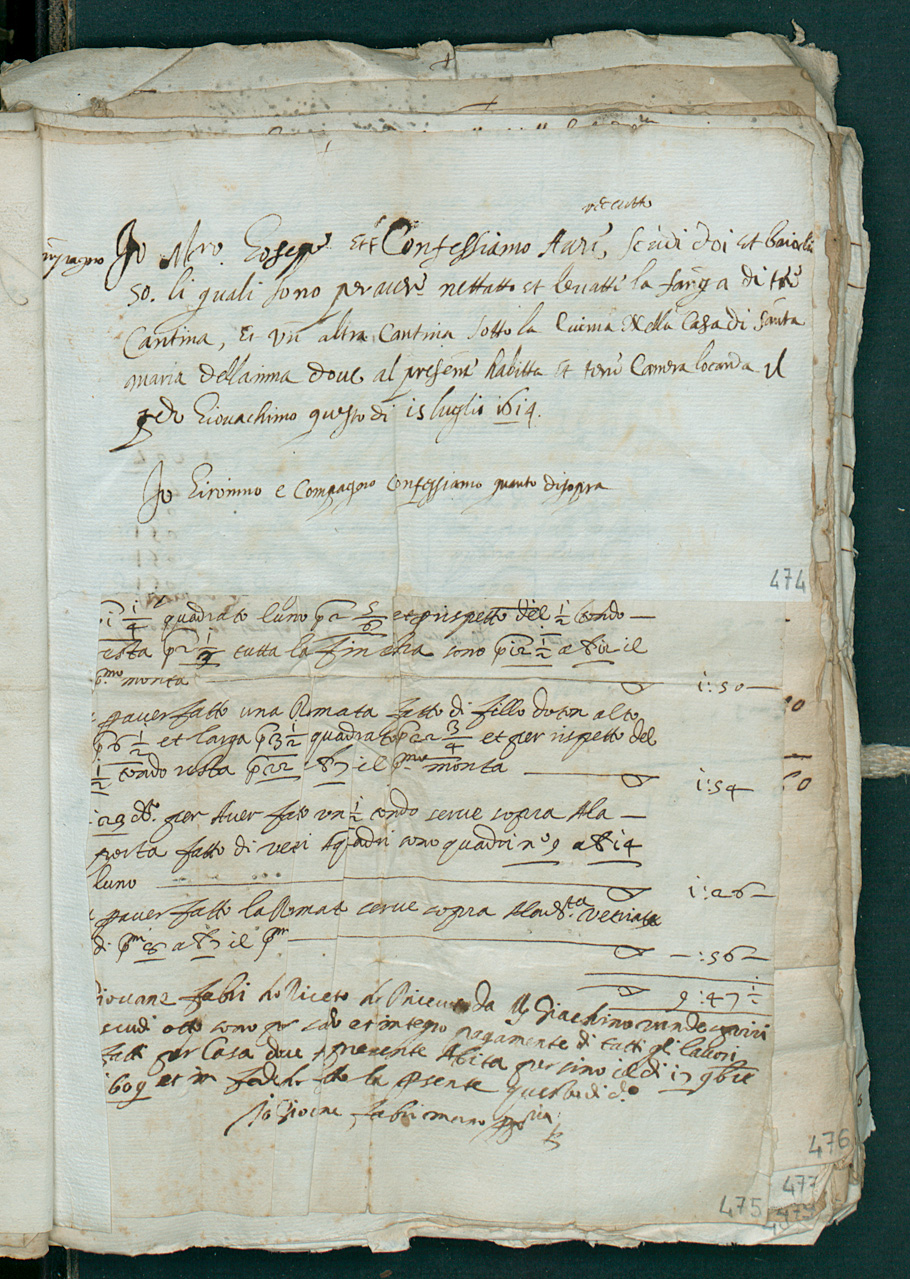 receutto
Io Mro. Gosepe et Confessiamo Aure scudi doi et baiochi
50. li quali sono per avere nettatto et levatti la fanga di tre
Cantina, et un altra Cantina sotto la Cucina Nella Casa di Santa
maria dellanima dove al presente habitta et tene Camera locanda il
Giovachimo questo di 15 luglio 1614.
Io Gironimo e Compagno Confessiamo quanto disopra
474
1 1/4 quadrato luno p 2 5/6 et p rispetto del 1/2 tondo
resta p 2 1/2 tutta la sono p 12 1/2 a il
pmo monta 1:50
p aver fatto una Ramata fatto di fillo doton alto
p 6 1/2 et larga p 3 1/2 quadrato p 22 3/4 et per rispetto del
1/2 tondo resta p 22 7 il pmo monta 1:54
29 do. per Aver fato un 1/2 tondo serve sopra Ala
porta fatto di veri squadri sono quadri no 9 a 14
luno 1:26
p aver fatto la Ramat serve sopra Ala vetriata
di pmi 8 a 7 il pmo :56
9:47 1/2
Giovane fabri ho Riceto da Giachimo
scudi otto sono per saldo et intego pagamente di tutti gli lavori
fatti per Casa dove presente Abita per sino il di 17 9bre
1609 et in fede ho fatto la presente questo di do
Io Giovane fabri mano ppria
475
476
477